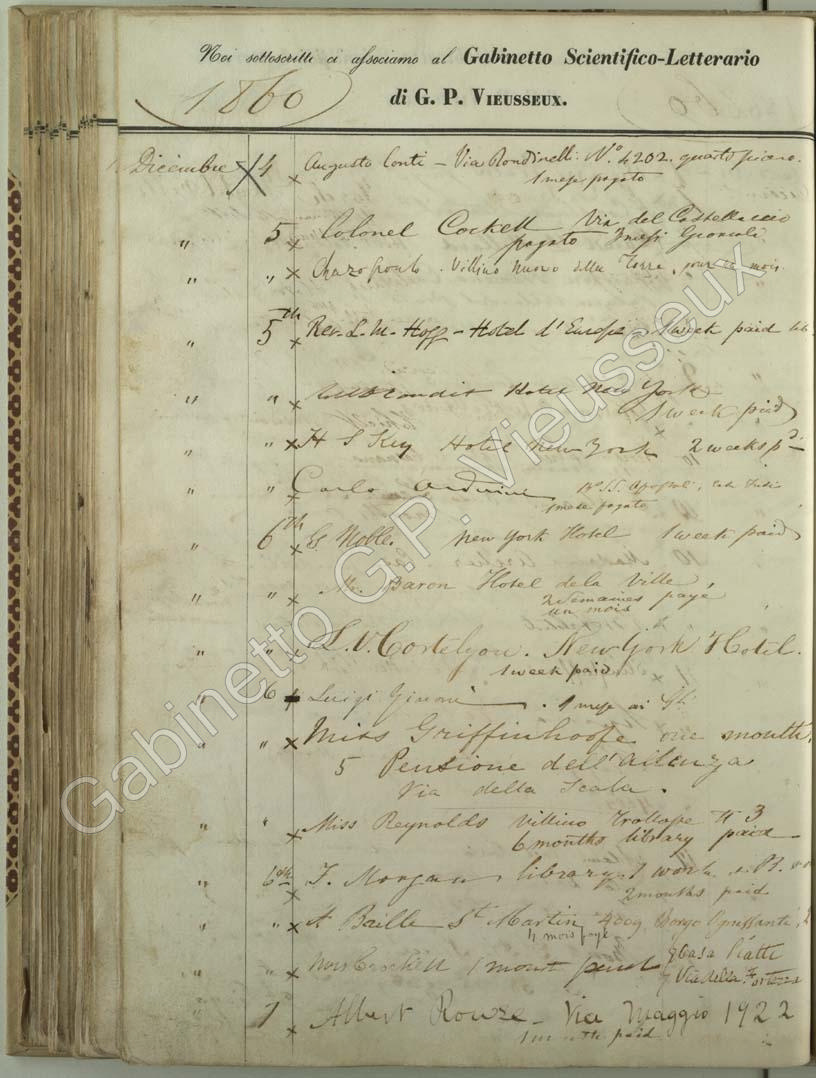 Noi sottoscritti ci associamo al Gabinetto Scientifico-Letterario
di G. P. Vieusseux.
1860
Dicembre 4 Augusto Conti - Via Rondinelli. N.o 4202. quarto piano.
1 mese pagato
" 5 Colonel Cockell Via del Castellaccio
pagato 3 mesi
" " Villino Nuovo della Torre, pour un mois
" 5th Rev. L. M. Hogg - Hotel d'Europe - 1 week paid
" " Hotel New York
1 week paid
" " H S Key Hotel New York 2 weeks pd
" " Carlo Arduini
1 mese pagato
" 6th G. Noble. New York Hotel 1 week paid
" " Mr. Baron Hotel de la Ville,
2 Semaines payé
un mois
" " L. V. Cortelyou. New York Hotel.
1 week paid
" 6 Luigi 1 mese
" " Miss Griffinhoofe one month.
5 Pensione dell'Alianza
Via della Scala.
" " Miss Reynolds Villino Trollope # 3
6 months library paid
" 6th F. Morgan library 1 work
2 months paid
" " A Baille St Martin 4009 Borgo Ognissanti
mois payé
" " Crockett 1 mount paid Casa Piatti
Via della Fortezza
" 7 Albert Rouze - Via Maggio 1922
1 month paid
Gabinetto G.P. Vieusseux